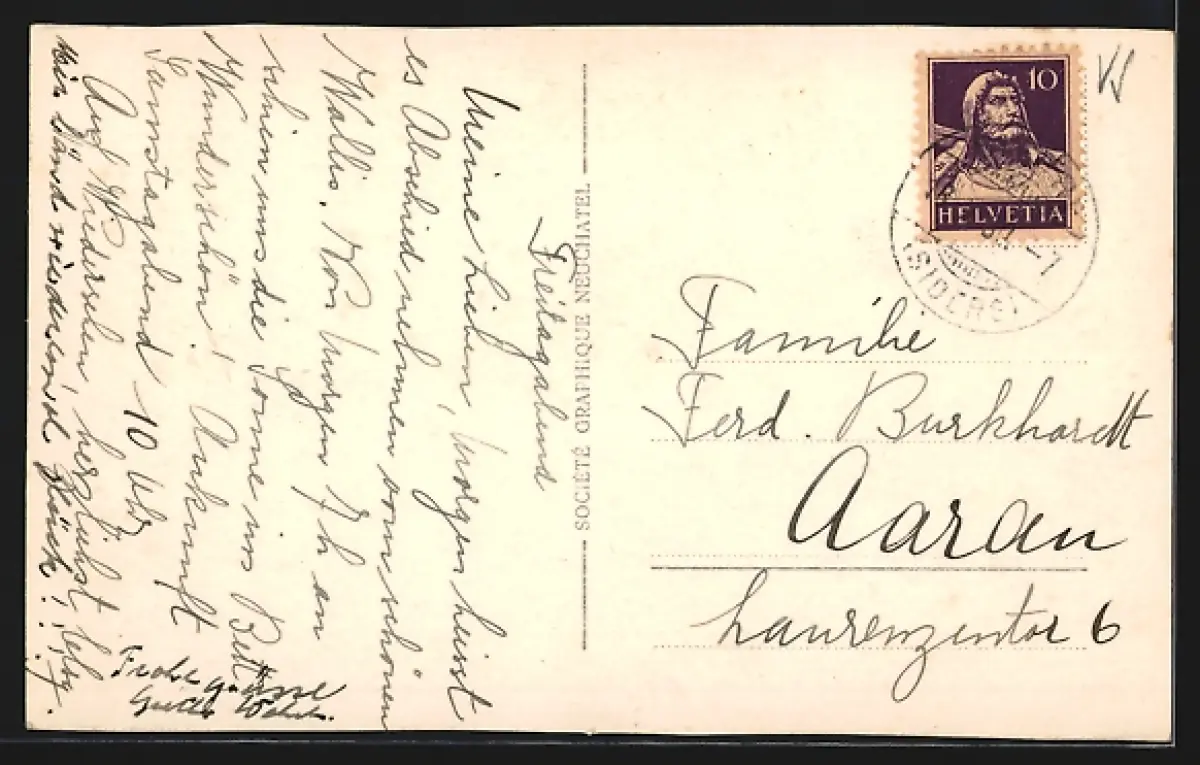 Freitagabend
Meine Lieben, Morgen heisst
es Abschied nehmen vom schönen
Wallis. Von Morgen 7 h an
schien uns die Sonne ins Bett
Wunderschön! Ankunft
Samstagabend 10 Uhr
Auf Wiedersehen, herzlichst
Mir sänd wiederemol
Frohe grüsse
SOCIÉTÉ GRAPHIQUE NEUCHATEL
10
HELVETIA
SIDERS
VS
Familie
Ferd. Burkhardt
Aarau
Laurenzentor 6